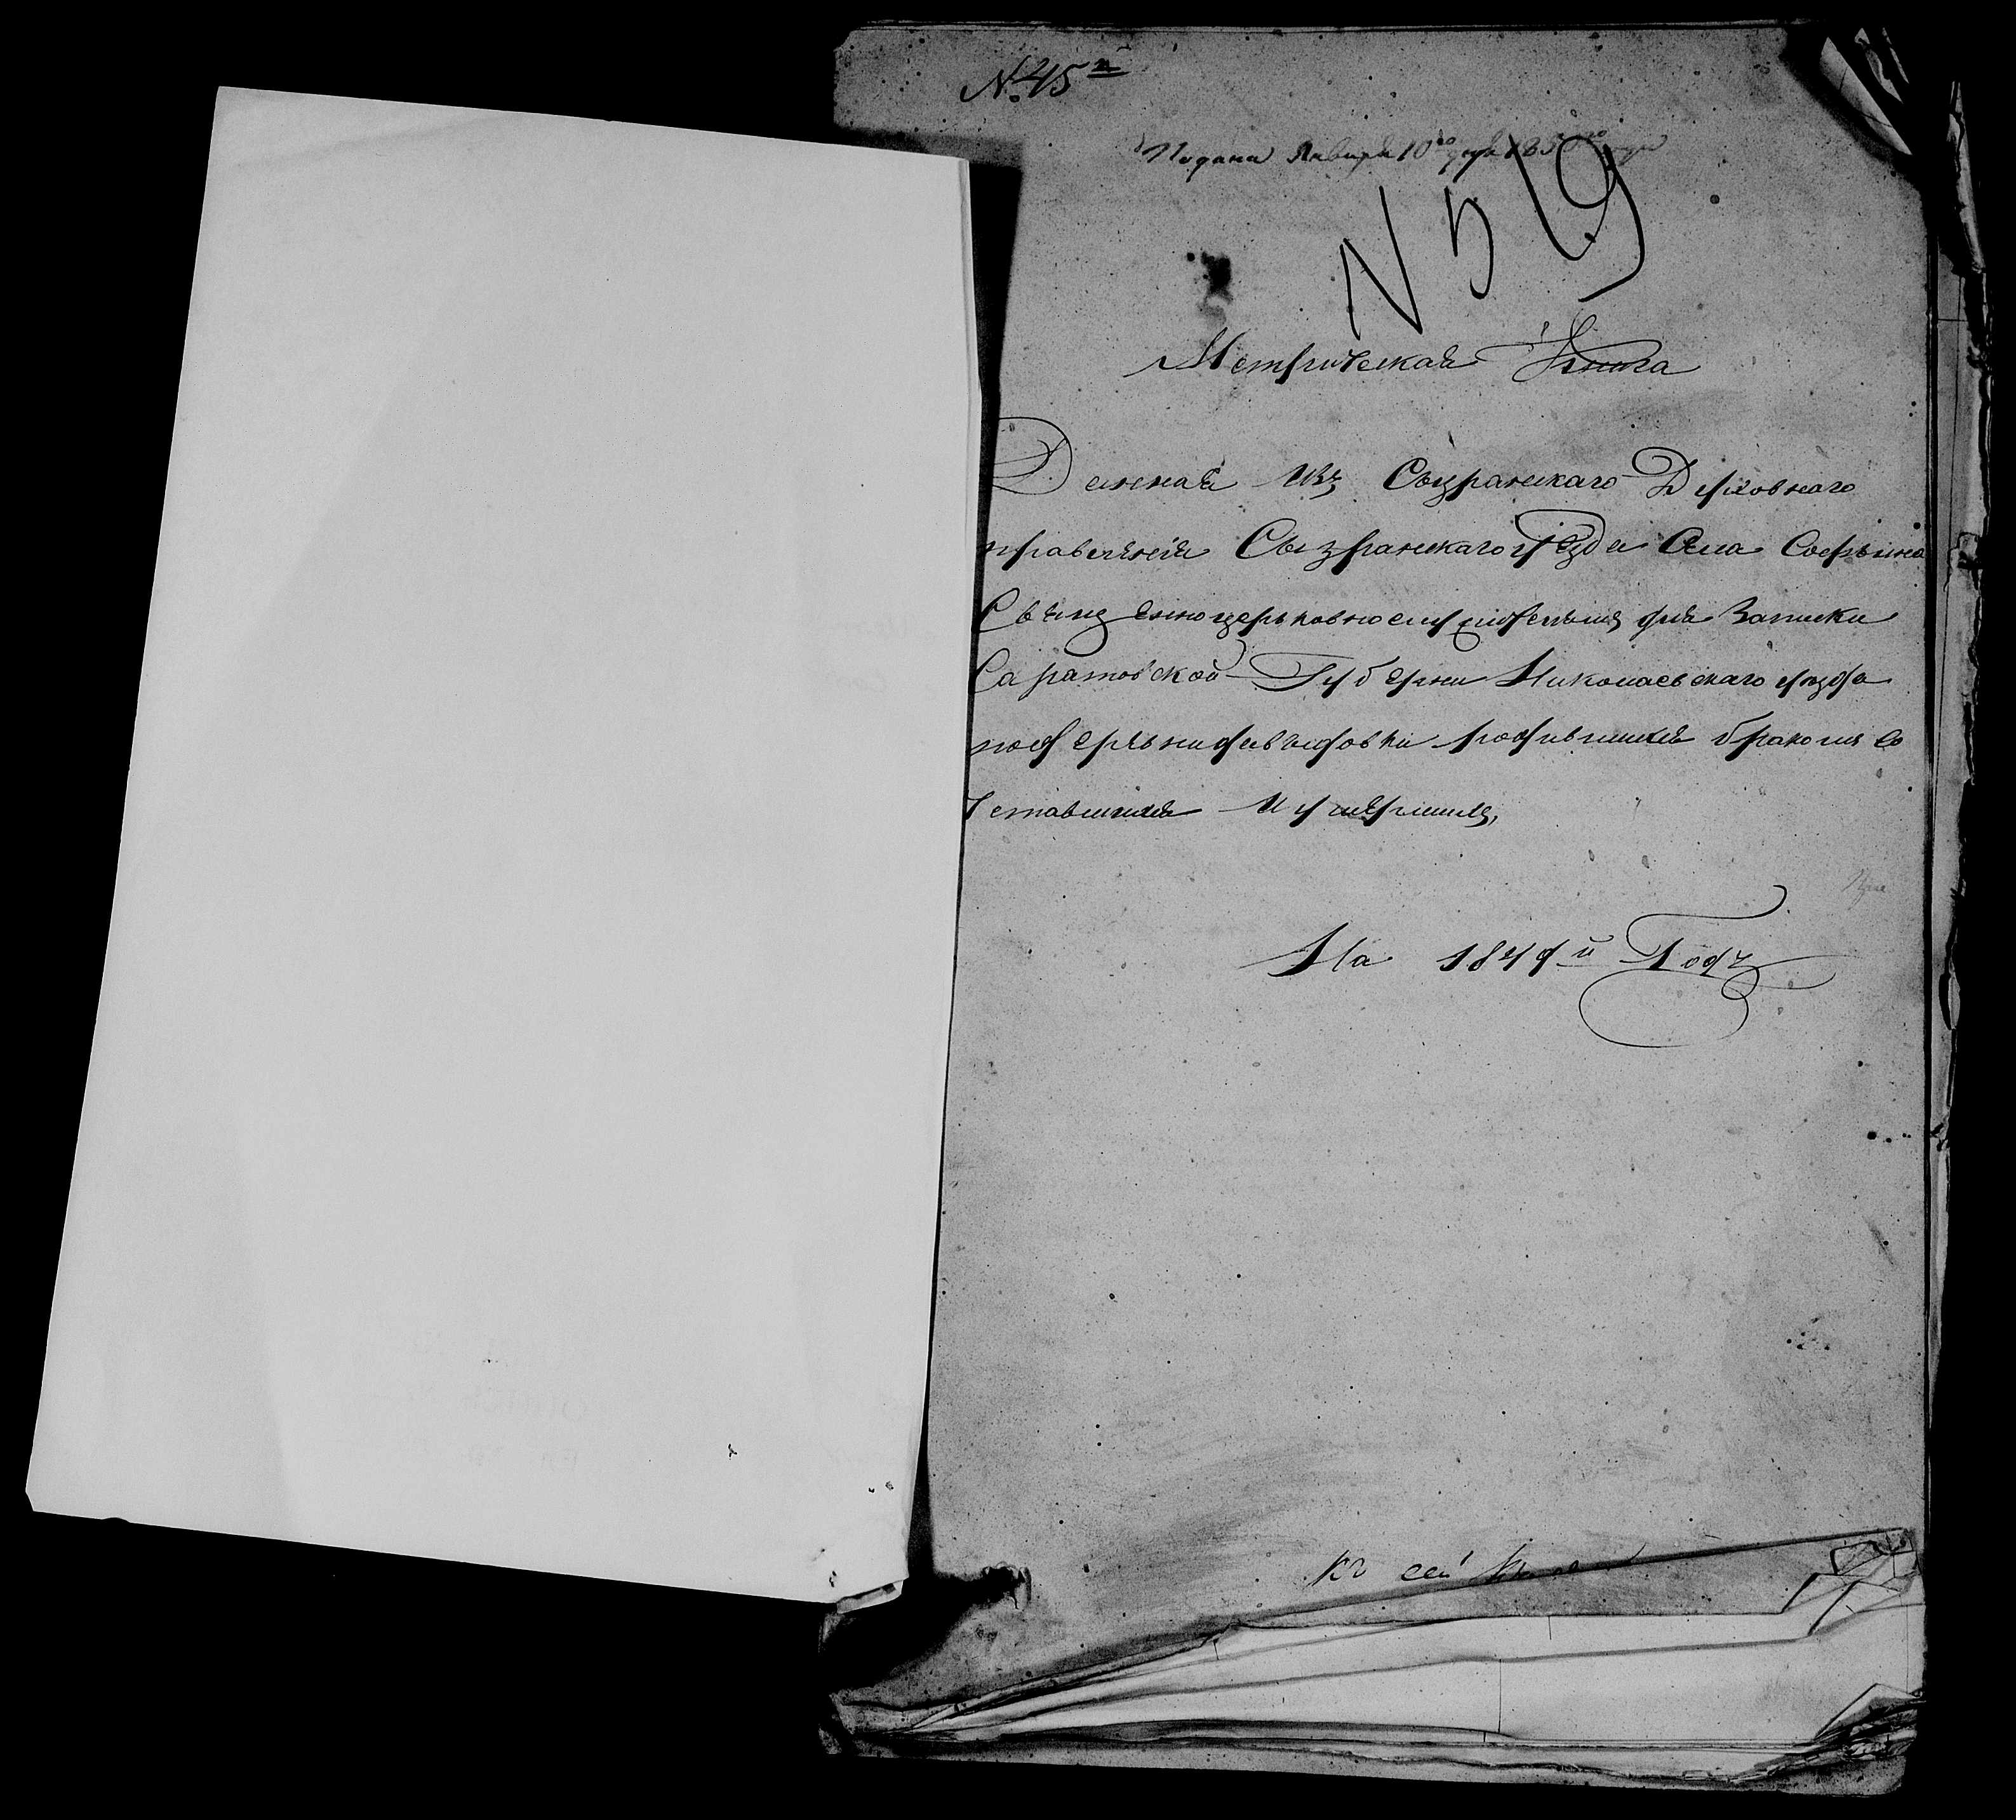 № 45й
Подана Января 10го дня 185 года
N 519
Метрическая Книга
Данная изъ Сызранскаго Духовнаго
правления Сызранскаго уезда села
Священноцерьковнослужителямъ для Записки
Саратовской Губерни Николаевскаго уезда
родившихся бракомъ со
четавшихся и умершихъ,
На 1849й Годъ
Къ сей